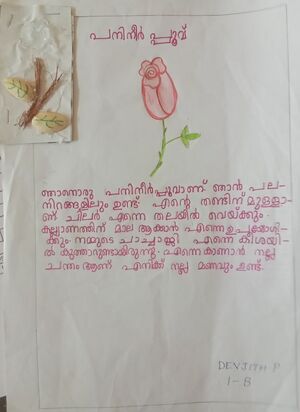 പനിനീർ പ്പൂവ്
ഞാനൊരു പനിനീർപ്പൂവാണ് ഞാൻ പല-
നിറങ്ങളിലും ഉണ്ട് എന്റെ തണ്ടിന് മുള്ളാ
ണ് ചിലർ എന്നെ തലയിൽ വെയ്ക്കും.
കല്ല്യാണത്തിന് മാല ആക്കാൻ എന്നെ ഉപയോഗി
ക്കും. നമ്മുടെ ചാച്ചാജി എന്നെ കീശയി
ൽ കുത്താറുണ്ടായിരുന്നു. എന്നെ കാണാൻ നല്ല
ചന്തം ആണ് എനിക്ക് നല്ല മണവും ഉണ്ട്.
DEVJITH P
1-B